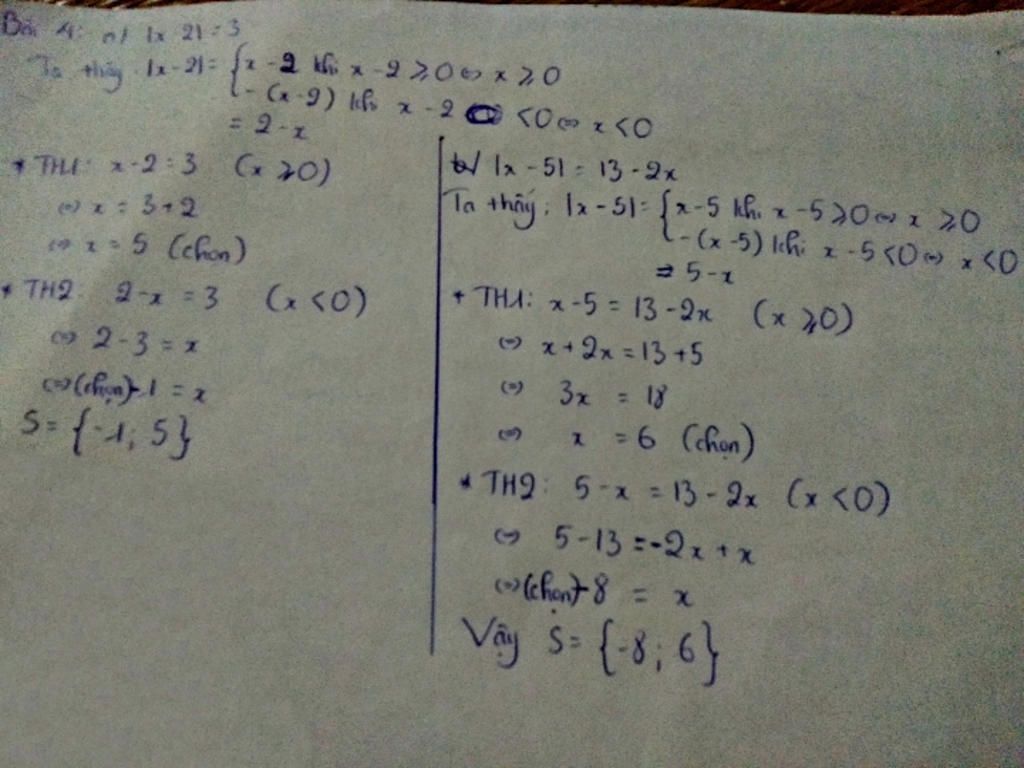 Bài 4: a) |x-2| = 3
Ta thấy: |x-2| = { x - 2 khi x - 2 ⩾ 0 ⇔ x ⩾ 0
- (x-2) khi x - 2 < 0 ⇔ x < 0
= 2 - x
* TH1: x - 2 = 3 (x ⩾ 0)
⇔ x = 3 + 2
⇔ x = 5 (chọn)
* TH2: 2 - x = 3 (x < 0)
⇔ 2 - 3 = x
⇔ (chọn) -1 = x
S = {-1; 5}
b) |x - 5| = 13 - 2x
Ta thấy: |x-5| = { x-5 khi x - 5 ⩾ 0 ⇔ x ⩾ 0
-(x-5) khi x - 5 < 0 ⇔ x < 0
= 5 - x
* TH1: x - 5 = 13 - 2x (x ⩾ 0)
⇔ x + 2x = 13 + 5
⇔ 3x = 18
⇔ x = 6 (chọn)
* TH2: 5 - x = 13 - 2x (x < 0)
⇔ 5 - 13 = -2x + x
⇔ (chọn) -8 = x
Vậy S = {-8; 6}